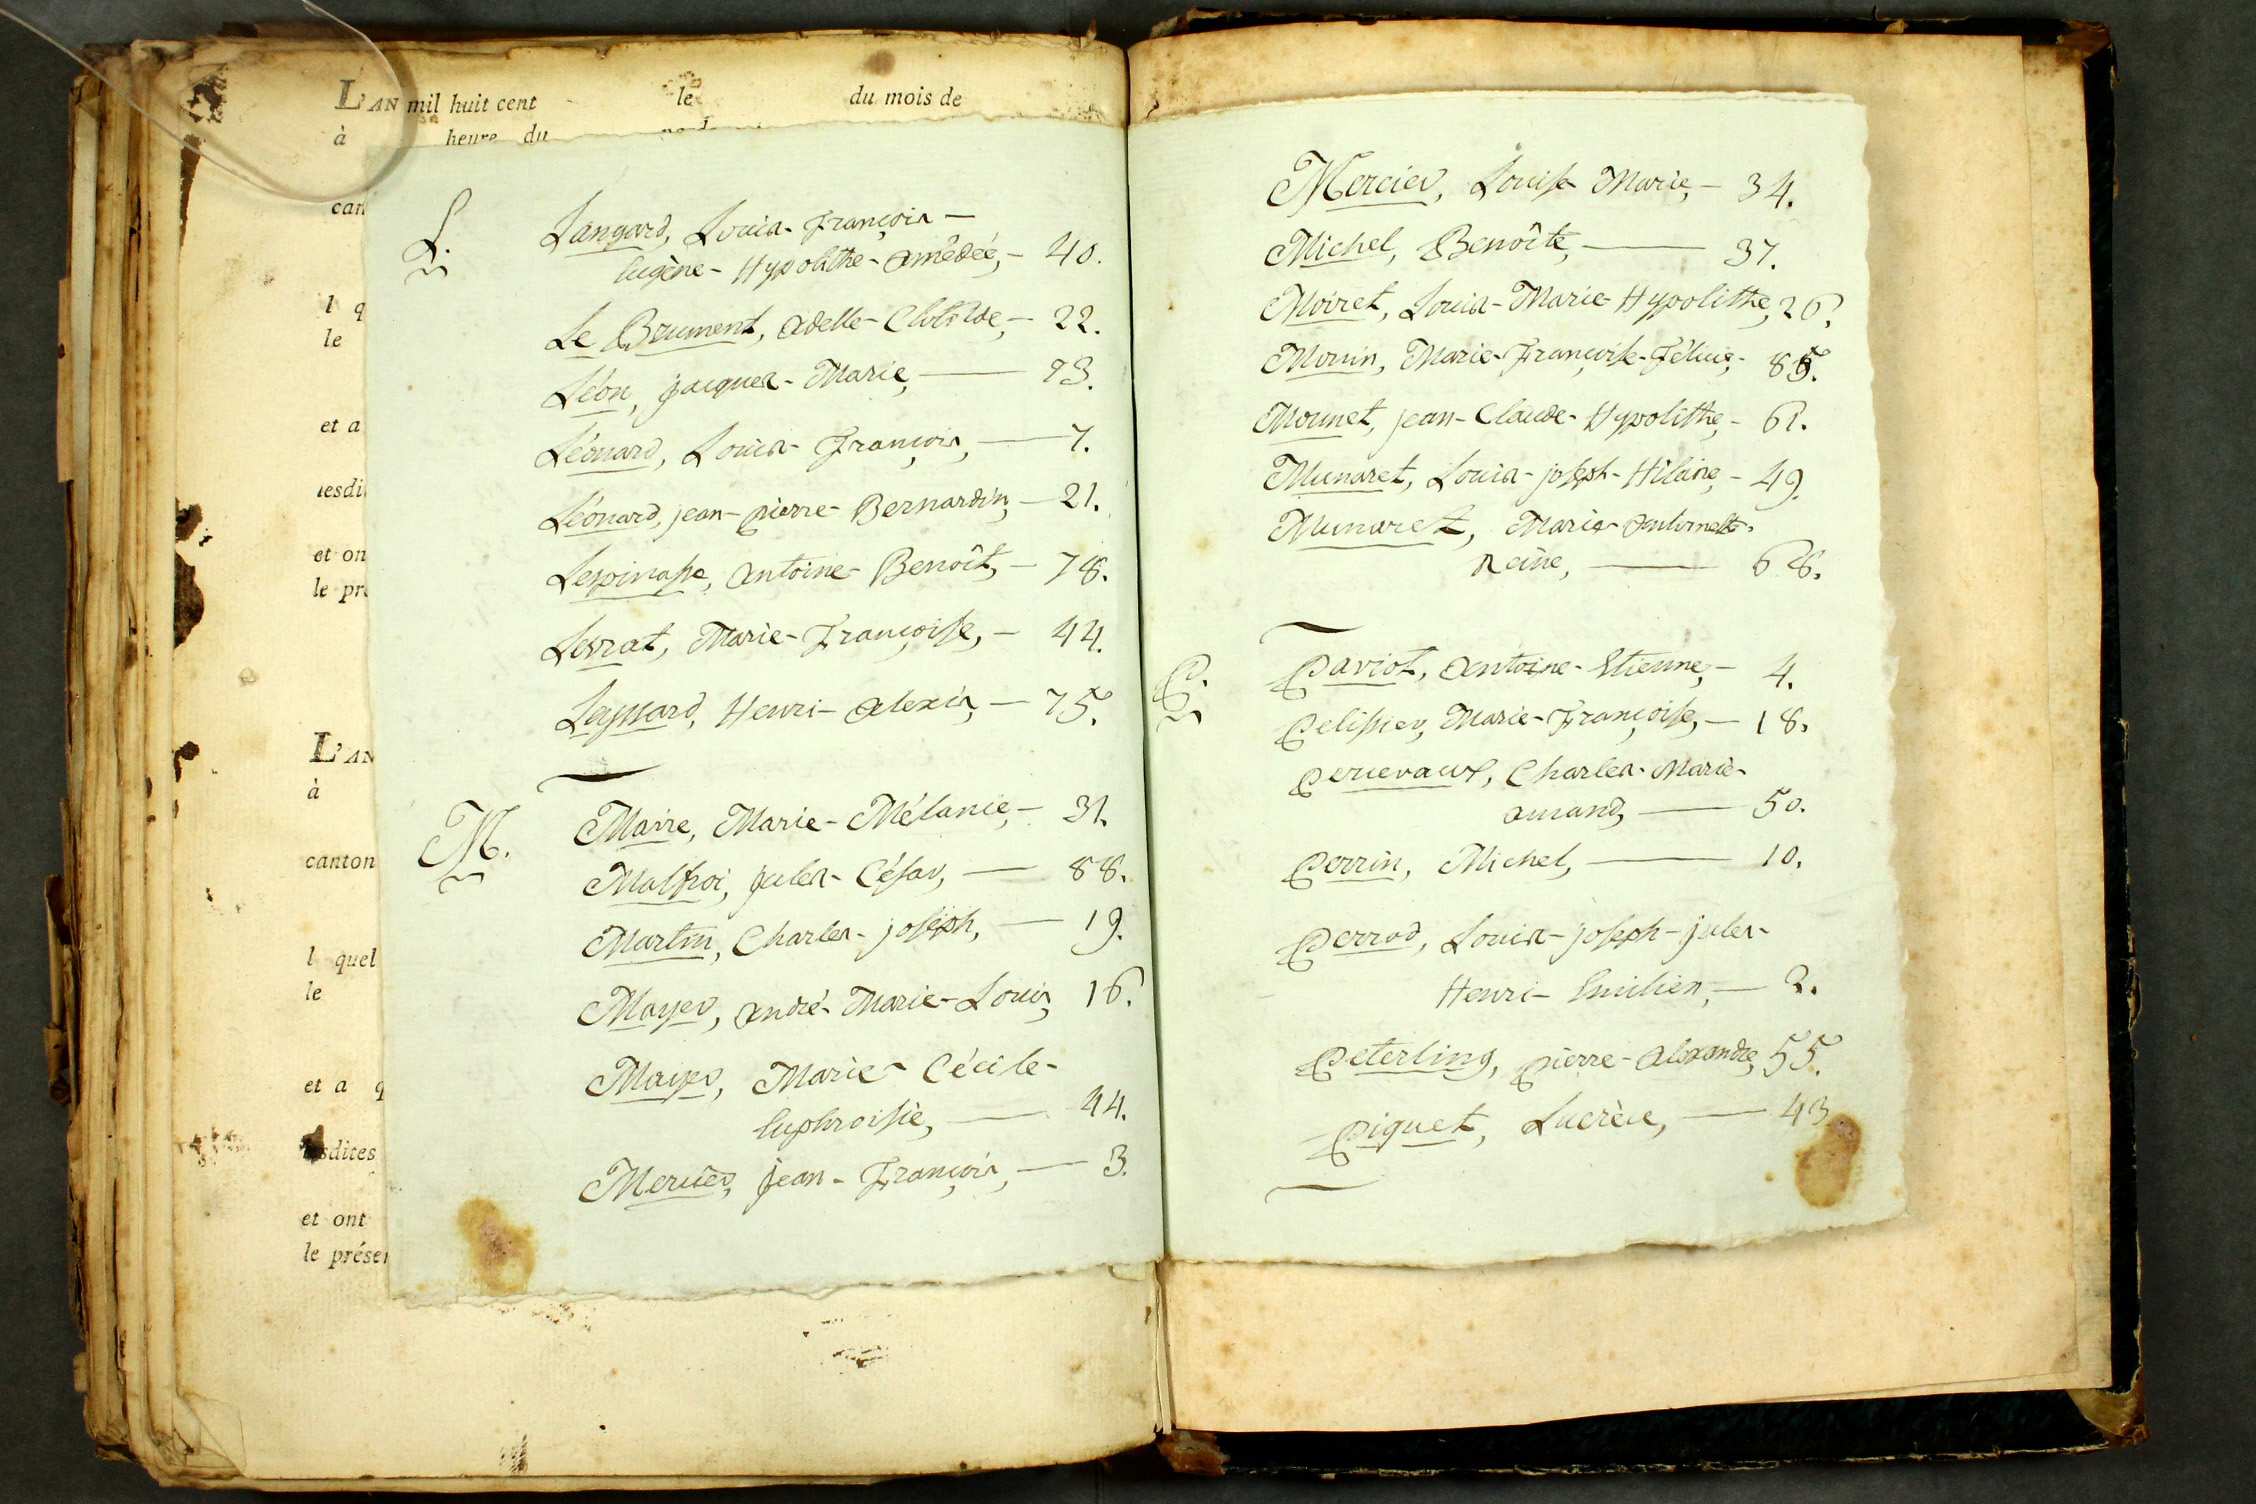 L'AN mil huit cent le du mois de
à heure du
can
l q
le
et a
lesdi
et on
le pré
L'AN
à
canton
l quel
le
et a q
esdites
et ont
le prése
L.
Langard, Louis-François-
Eugène-Hypolithe-Amédée,- 40.
Le Brument, Adelle-Clotilde,- 22.
Léon, Jacques-Marie,- 93.
Léonard, Louis-François,- 7.
Léonard, jean-Pierre-Bernardin,- 21.
Lespinasse, Antoine-Benoît,- 78.
Levrat, Marie-Françoise,- 44.
Leyssard, Henri-Alexis,- 75.
M.
Maire, Marie-Mélanie,- 31.
Malfroi, Jules-César,- 88.
Martin, Charles-joseph,- 19.
Mayer, André-Marie-Louis, 16.
Mayer, Marie-Cécile-
Euphroisie,- 44.
Mercier, Jean-François,- 3.
Mercier, Louise Marie,- 34.
Michel, Benoîte,- 37.
Moiret, Louis-Marie-Hypolithe, 26.
Monin, Marie-Françoise-Félicie,- 85.
Mounet, jean-Claude-Hypolithe,- 61.
Munaret, Louis-joseph-Hilaire,- 49.
Munaret, Marie-Antoinette-
Reine,- 68.
P.
Paviot, Antoine-Etienne,- 4.
Pelissier, Marie-Françoise,- 18.
Percevaux, Charles-Marie-
Amand,- 50.
Perrin, Michel,- 10.
Perrod, Louis-joseph-jules-
Henri-Emilien,- 2.
Peterling, Pierre-Alexandre, 55.
Piquet, Lucrèce,- 43